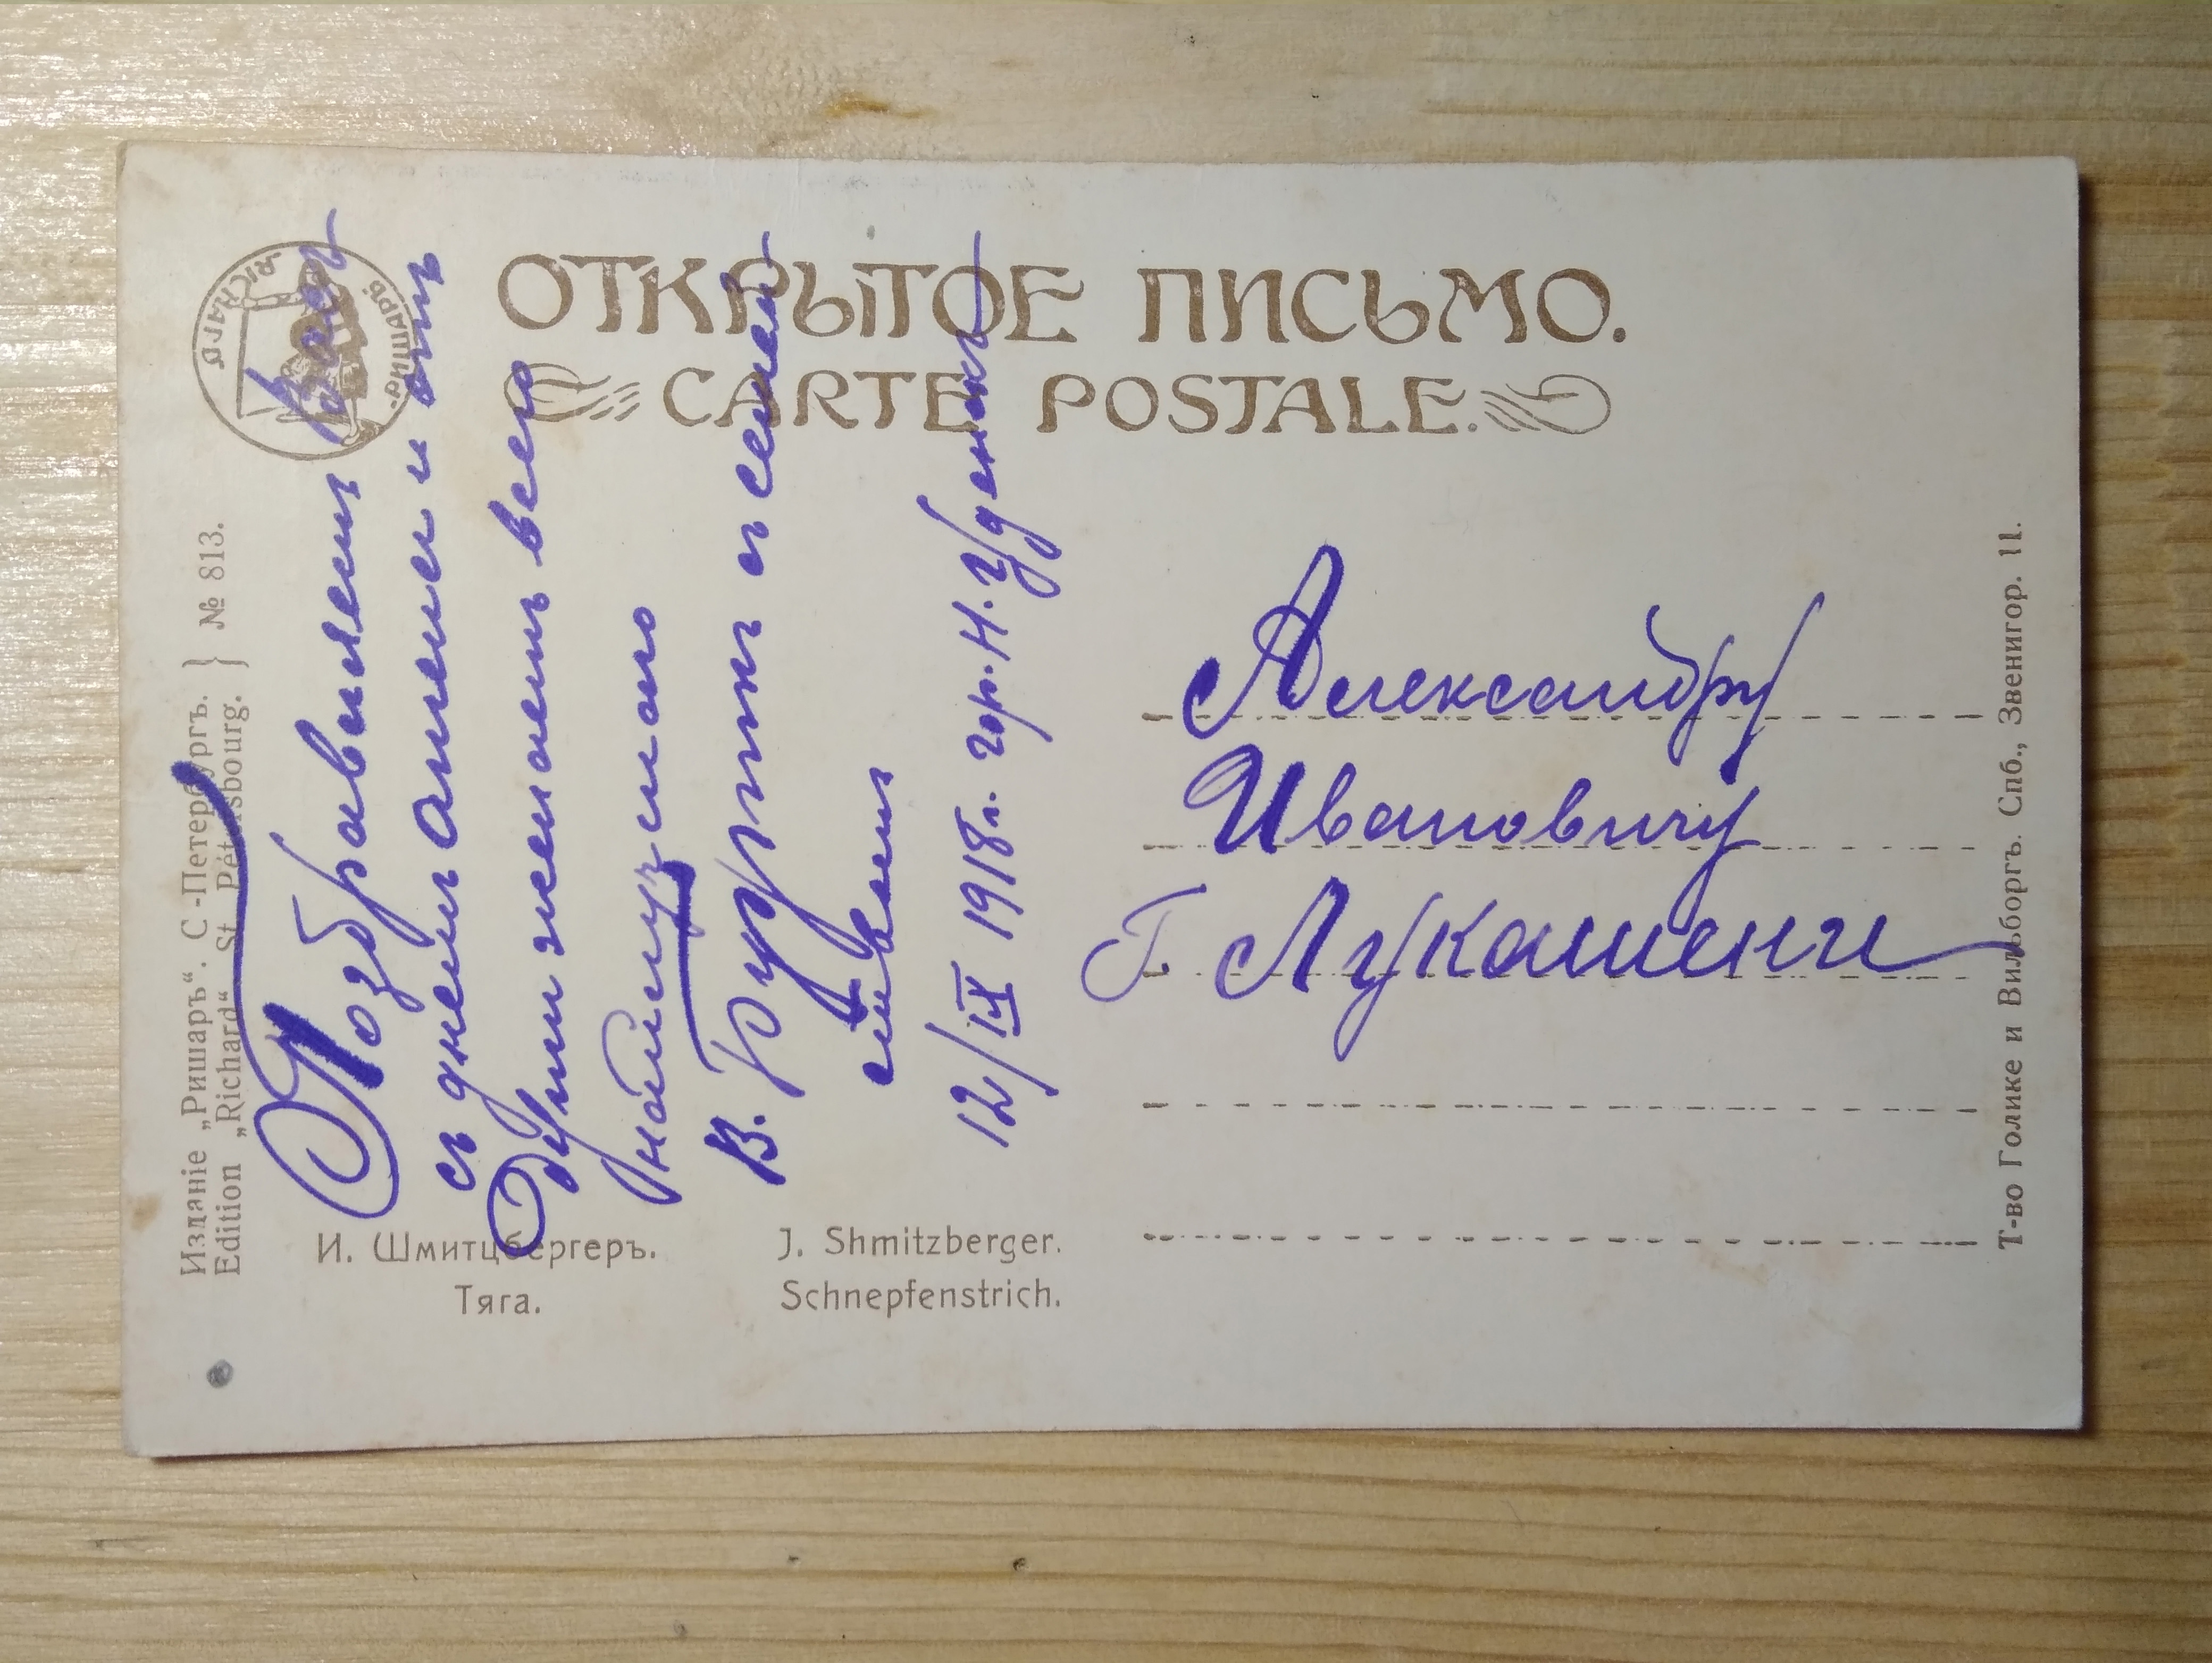 ОТКРЫТОЕ ПИСЬМО.
CARTE POSTALE.
РИШАРЪ.
RICHARD
Изданіе „Ришаръ“. С-Петербургъ.
Edition „Richard“. St. Pétersbourg.
№ 813.
Поздравляемъ Васъ
съ днемъ Ангела и отъ
Души желаемъ всего
наилучшаго
В. съ семей
ствомъ
12/IX 1918г. гор. Н.
Александру
Ивановичу
Г.
И. Шмитцбергеръ.
Тяга.
J. Shmitzberger.
Schnepfenstrich.
Т-во Голике и Вильборгъ. Спб., Звенигор. 11.